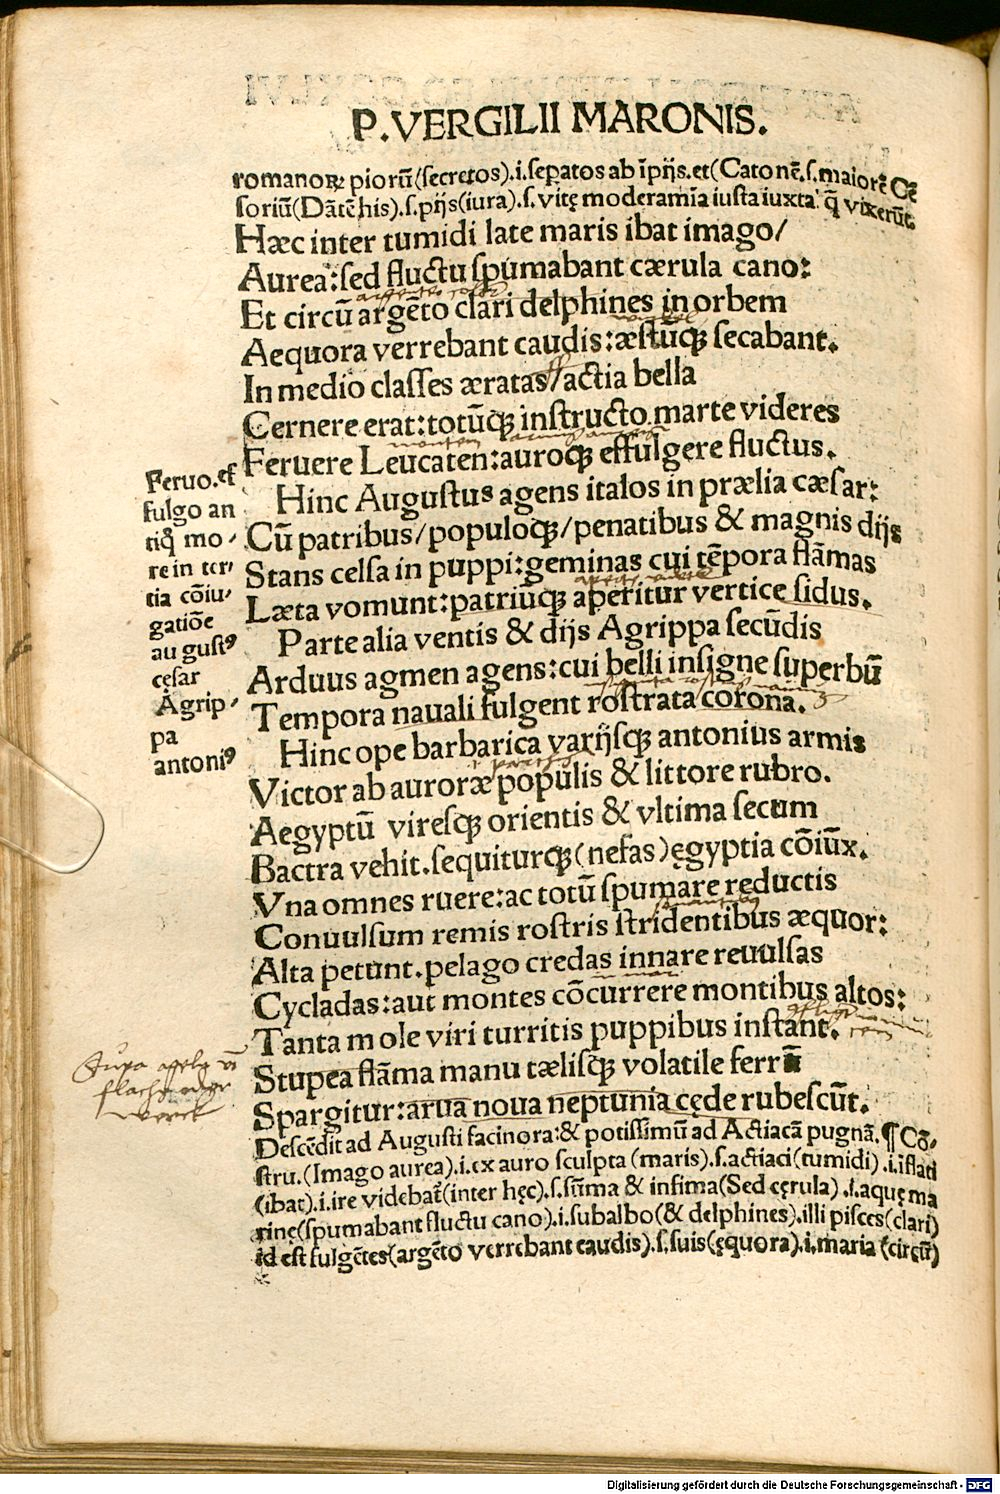 P.VERGILII MARONIS.
romanoꝝ piorū(secretos).i.sepatos ab īpijs.et(Catonē.s.maiorē Cē
soriū(Dātē his).s.pijs(iura).s.vitę moderamīa iusta iuxta q̄ vixerūt.
Hæc inter tumidi late maris ibat imago/
Aurea:sed fluctu spumabant cærula cano:
Et circū argēto clari delphines in orbem
Aequora verrebant caudis:æstūqꝫ secabant.
In medio classes æratas/actia bella
Cernere erat:totūqꝫ instructo marte videres
Feruere Leucaten:auroqꝫ effulgere fluctus.
Hinc Augustus agens italos in prælia cæsar:
Cū patribus/populoqꝫ/penatibus & magnis dijs
Stans celsa in puppi:geminas cui tēpora flāmas
Læta vomunt:patriūqꝫ aperitur vertice sidus.
Parte alia ventis & dijs Agrippa secūdis
Arduus agmen agens:cui belli insigne superbū
Tempora nauali fulgent rostrata corona.
Hinc ope barbarica varijsqꝫ antonius armis
Victor ab auroræ populis & littore rubro.
Aegyptū viresqꝫ orientis & vltima secum
Bactra vehit.sequiturqꝫ(nefas)ęgyptia cōiūx.
Vna omnes ruere:ac totū spumare reductis
Conuulsum remis rostris stridentibus æquor:
Alta petunt.pelago credas innare reuulsas
Cycladas:aut montes cōcurrere montibus altos:
Tanta mole viri turritis puppibus instant.
Stupea flāma manu tælisqꝫ volatile ferrū
Spargitur:arua noua neptunia cęde rubescūt.
Descēdit ad Augusti facinora:& potissimū ad Actiacā pugnā.¶Cō-
stru.(Imago aurea).i.ex auro sculpta(maris).s.actiaci(tumidi).i.īflati
(ibat).i.ire videbat̄(inter hęc).s.sūma & infima(Sed cęrula).s.aquę ma
rinę(spumabant fluctu cano).i.subalbo(& delphines).illi pisces(clari)
id est fulgētes(argēto verrebant caudis).s.suis(ęquora).i.maria(circū)
Feruo.et
fulgo an
tiq̄ mo-
re in ter-
tia cōiu-
gatiōe
augustꝰ
cęsar
Agrip-
pa
antoniꝰ
Digitalisierung gefördert durch die Deutsche Forschungsgemeinschaft - DFG